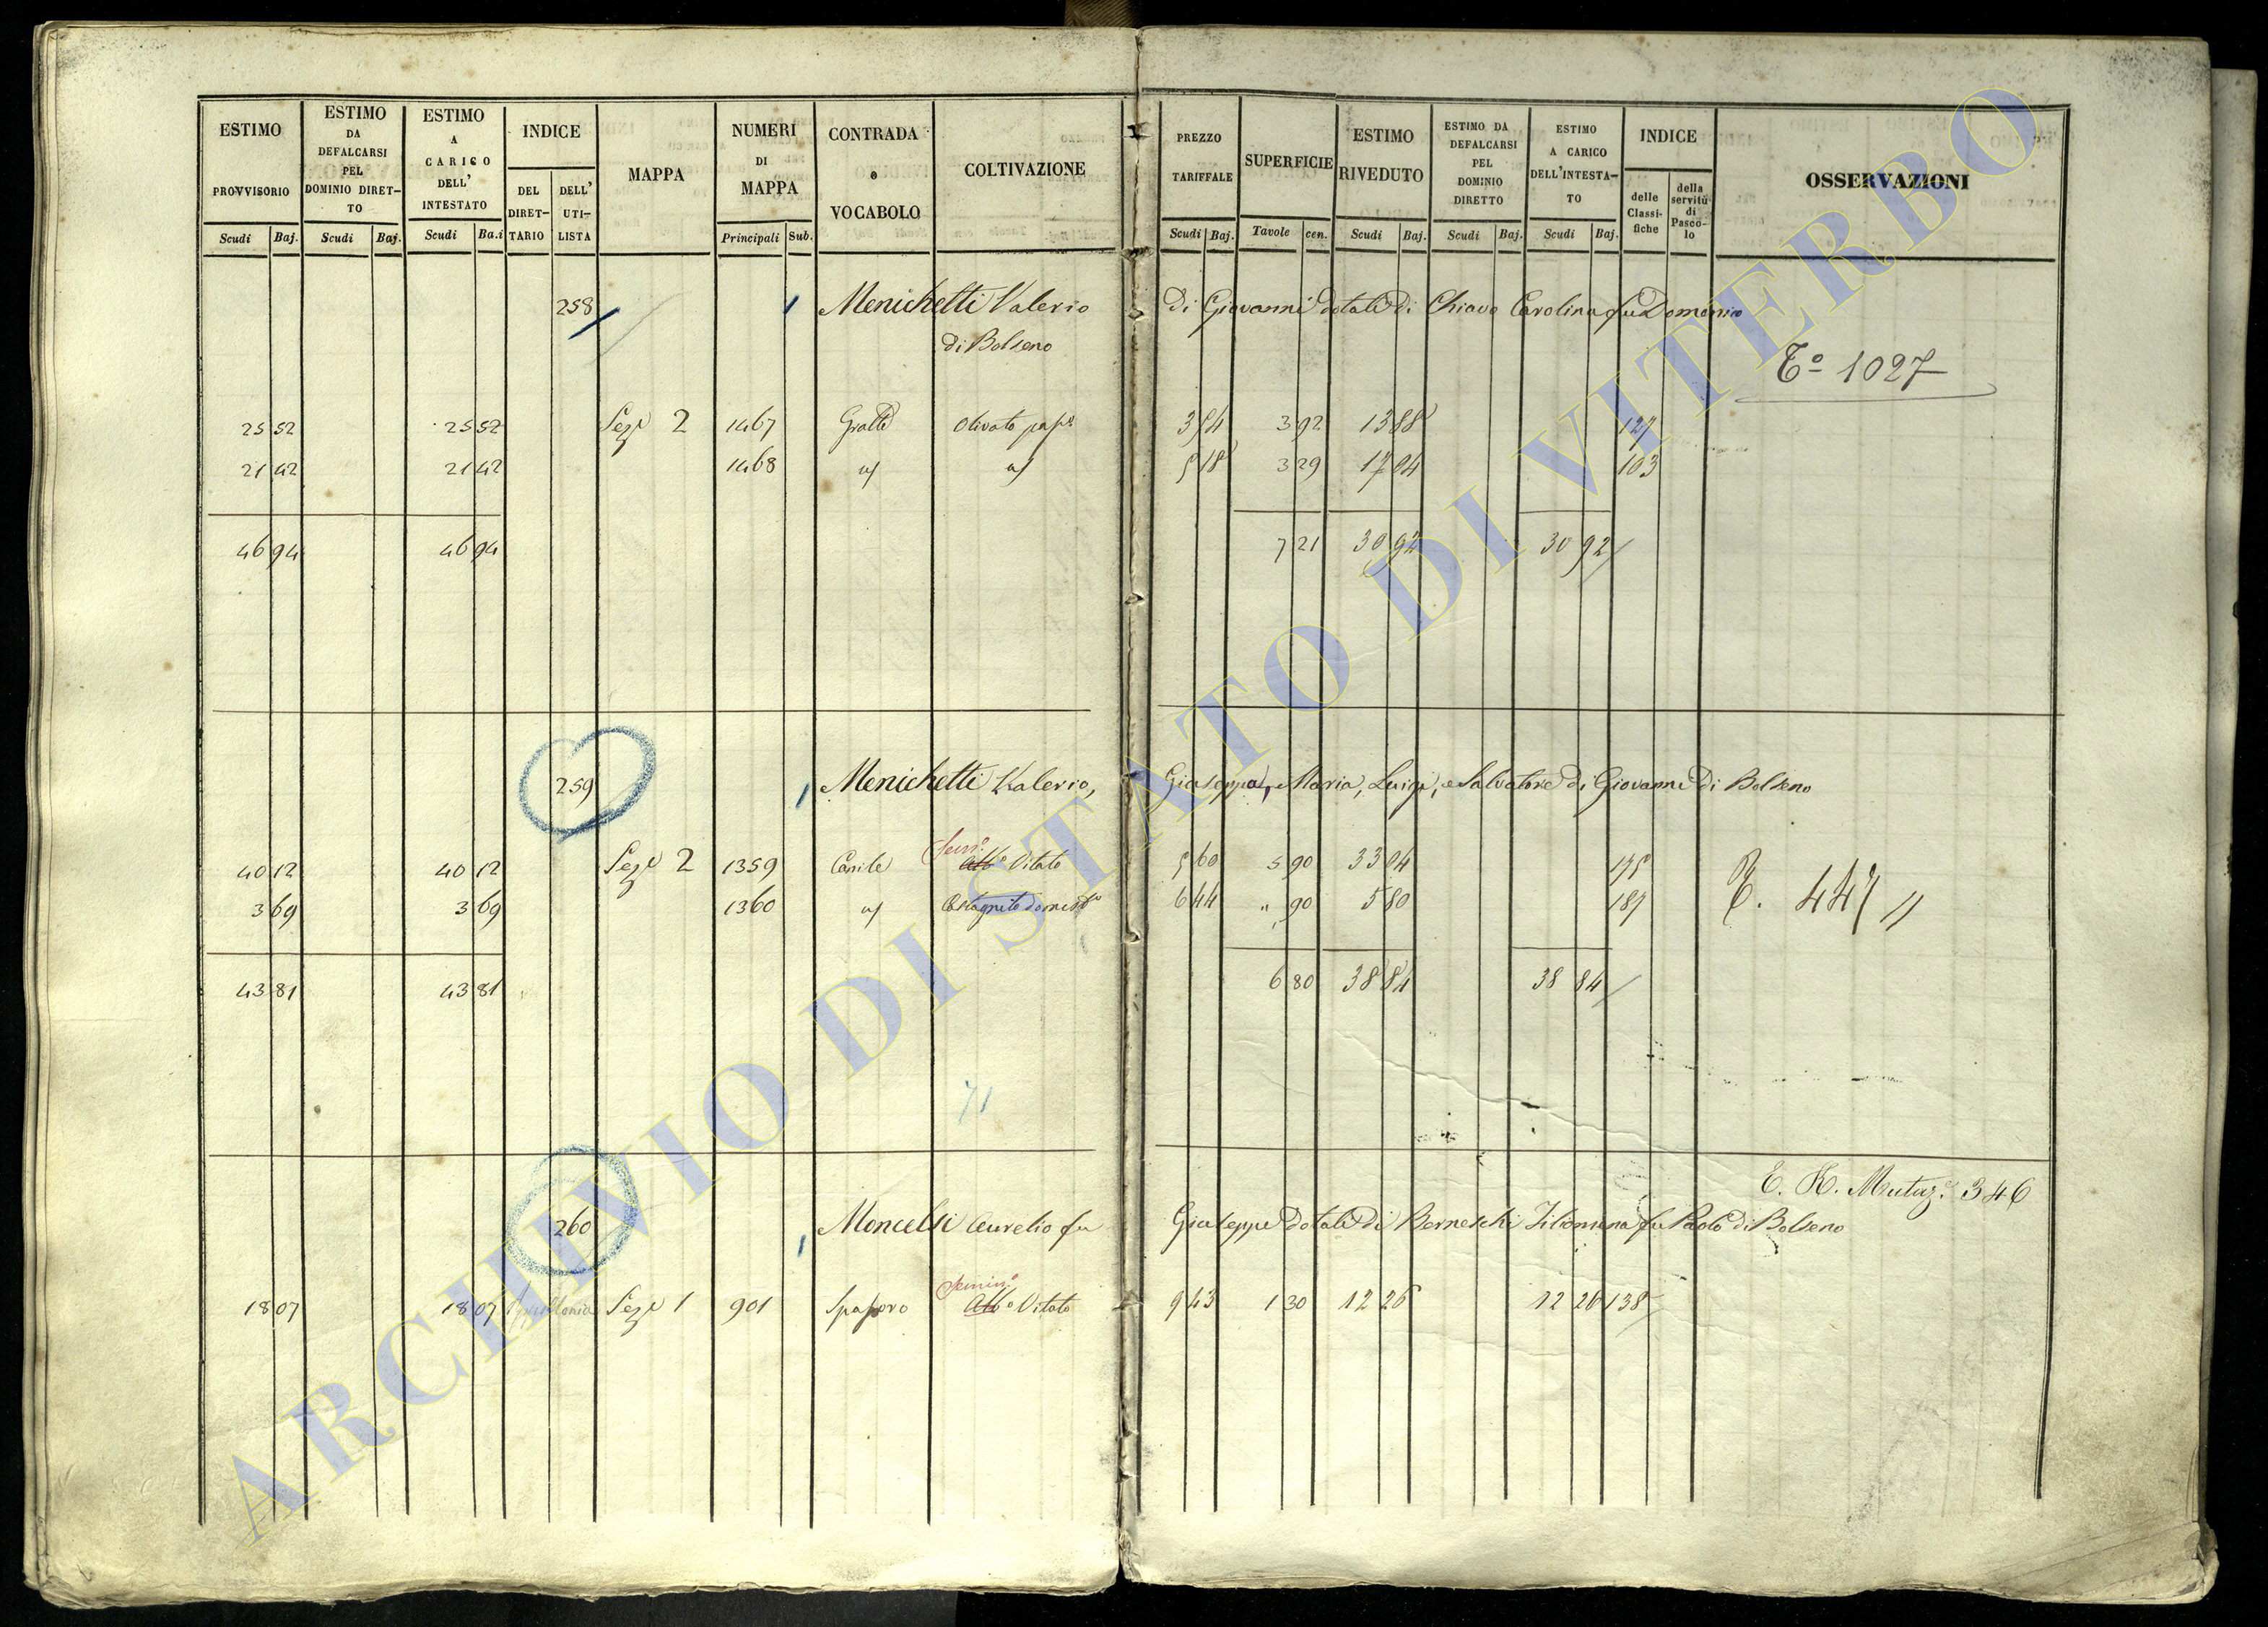 ESTIMO PROVVISORIO Scudi Baj.
ESTIMO DA DEFALCARSI PEL DOMINIO DIRETTO Scudi Baj.
ESTIMO A CARICO DELL' INTESTATO Scudi Ba.i
INDICE DEL DIRETTARIO DELL' UTILISTA
MAPPA
NUMERI DI MAPPA Principali Sub.
CONTRADA o VOCABOLO
COLTIVAZIONE
PREZZO TARIFFALE Scudi Baj.
SUPERFICIE Tavole cen.
ESTIMO RIVEDUTO Scudi Baj.
ESTIMO DA DEFALCARSI PEL DOMINIO DIRETTO Scudi Baj.
ESTIMO A CARICO DELL'INTESTATO Scudi Baj.
INDICE delle Classifiche della servitù di Pascolo
OSSERVAZIONI
258 1 Menichetti Valerio di Giovanni dotale di Chiava Carolina fu Domenico
di Bolseno
To 1027
25 52 25 52 Seze 2 1467 Gratte Olivato 3 54 3 92 13 88 127
21 42 21 42 1468 3 29 17 04 103
46 94 46 94 7 21 30 92 30 92
259 1 Menichetti Valerio, Giuseppa, Maria, Luigi, e Salvatore di Giovanni di Bolseno
Semo
40 12 40 12 Seze 2 1359 Canile Albo Vitato 5 60 5 90 33 04 175
3 69 3 69 1360 Castagneto domestco 6 44 " 90 5 80 187
T. 447
43 81 43 81 6 80 38 84 38 84
71
E. R. Mutaz. 346
260 1 Moncelsi Aurelio fu Giuseppe dotale di Berneschi Filomena fu Paolo di Bolseno
Semino
18 07 18 07 Seze 1 901 Spaporo Albo Vitato 9 43 1 30 12 26 12 26 138
ARCHIVIO DI STATO DI VITERBO